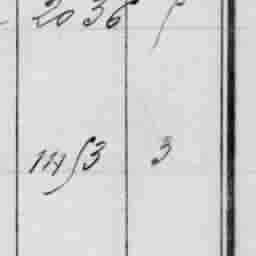 2036
1453 3